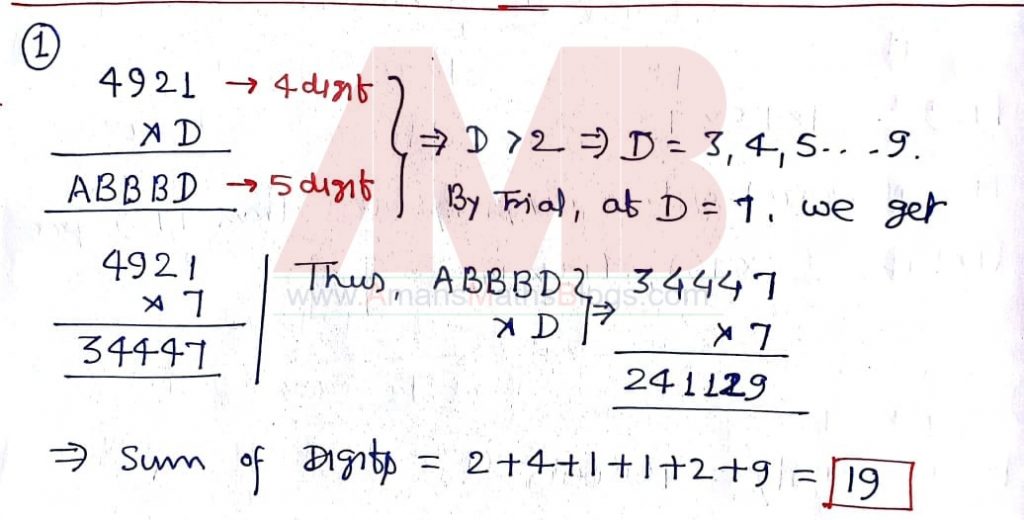 1
4921 → 4 digit
× D
ABBBD → 5 digit
⇒ D > 2 ⇒ D = 3, 4, 5 . . . 9.
By Trial, at D = 7, we get
4921
× 7
34447
Thus, ABBBD
× D
⇒
34447
× 7
241129
www.AmansMathsBlogs.com
⇒ Sum of Digits = 2+4+1+1+2+9 = 19
AMB